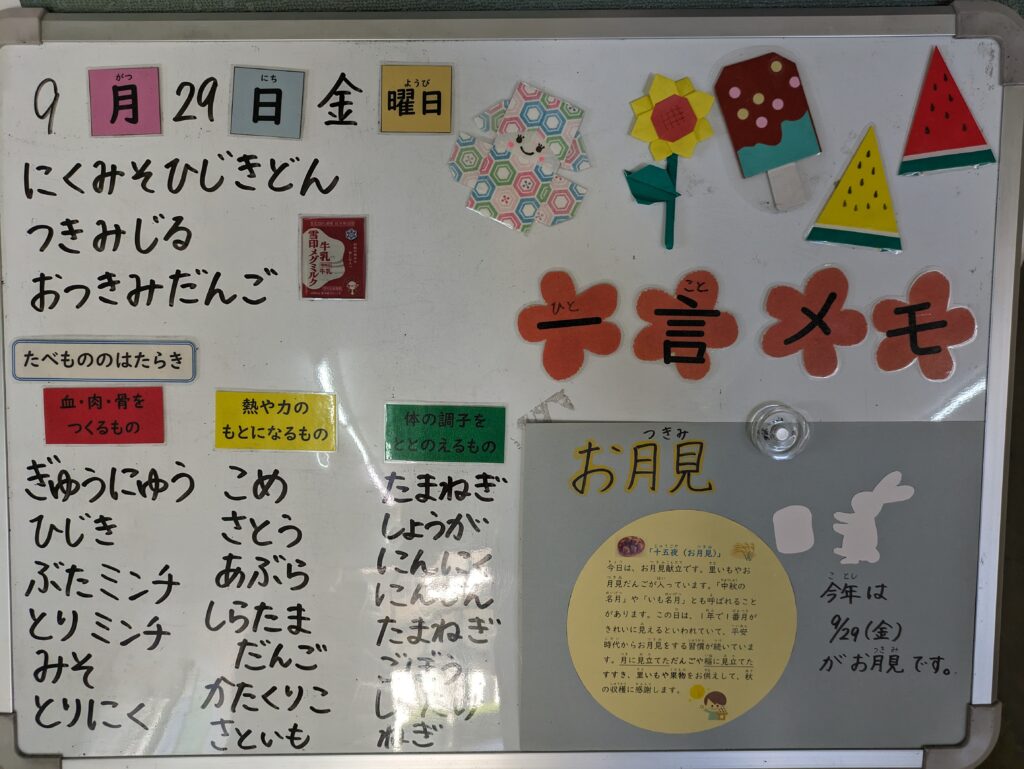 9月29日金曜日
にくみそひじきどん
つきみじる
おつきみだんご
雪印メグミルク
牛乳
一言メモ
たべもののはたらき
血・肉・骨を
つくるもの
ぎゅうにゅう
ひじき
ぶたミンチ
とりミンチ
みそ
とりにく
熱や力の
もとになるもの
こめ
さとう
あぶら
しらたま
だんご
かたくりこ
さといも
体の調子を
ととのえるもの
たまねぎ
しょうが
にんにく
にんじん
たまねぎ
ごぼう
ねぎ
お月見
「十五夜(お月見)」
今日は、お月見献立です。里いもやお
月見だんごが入っています。「中秋の
名月」や「いも名月」とも呼ばれること
があります。この日は、1年で1番月が
きれいに見えるといわれていて、平安
時代からお月見をする習慣が続いていま
す。月に見立てただんごや稲に見立てた
すすき、里いもや果物をお供えして、秋
の収穫に感謝します。
今年は
9/29(金)
がお月見です。